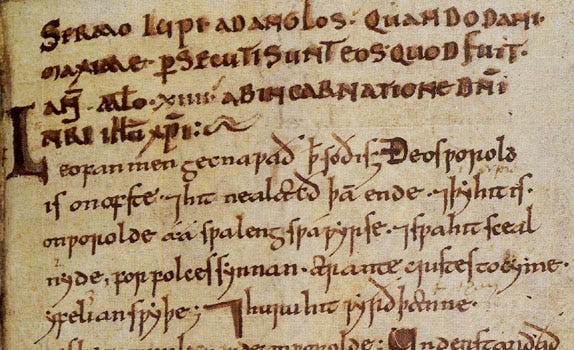 SERMO LUPI AD ANGLOS · QUANDO DANI ·
MAXIME · PSECUTI SUNT EOS · QUOD FUIT ·
AN̄ · M̄L̄O · XIIII · AB INCARNATIONE DN̄I
NR̄I IHŪ XP̄I :
Leofan men gecnaƿað ꝥ soð is; Ðeos ƿorold
is on ofste · ⁊ hit nealæcð þā ende · ⁊ þy hit is ·
on ƿorolde aa sƿa leng sƿa ƿyrse · ⁊ sƿa hit sceal
nyde, for folces synnan · ær antecristes tocyme ·
yfelian sƿyþe; ⁊ huru hit ƿyrð þænne ·
on ƿorolde: Understandað